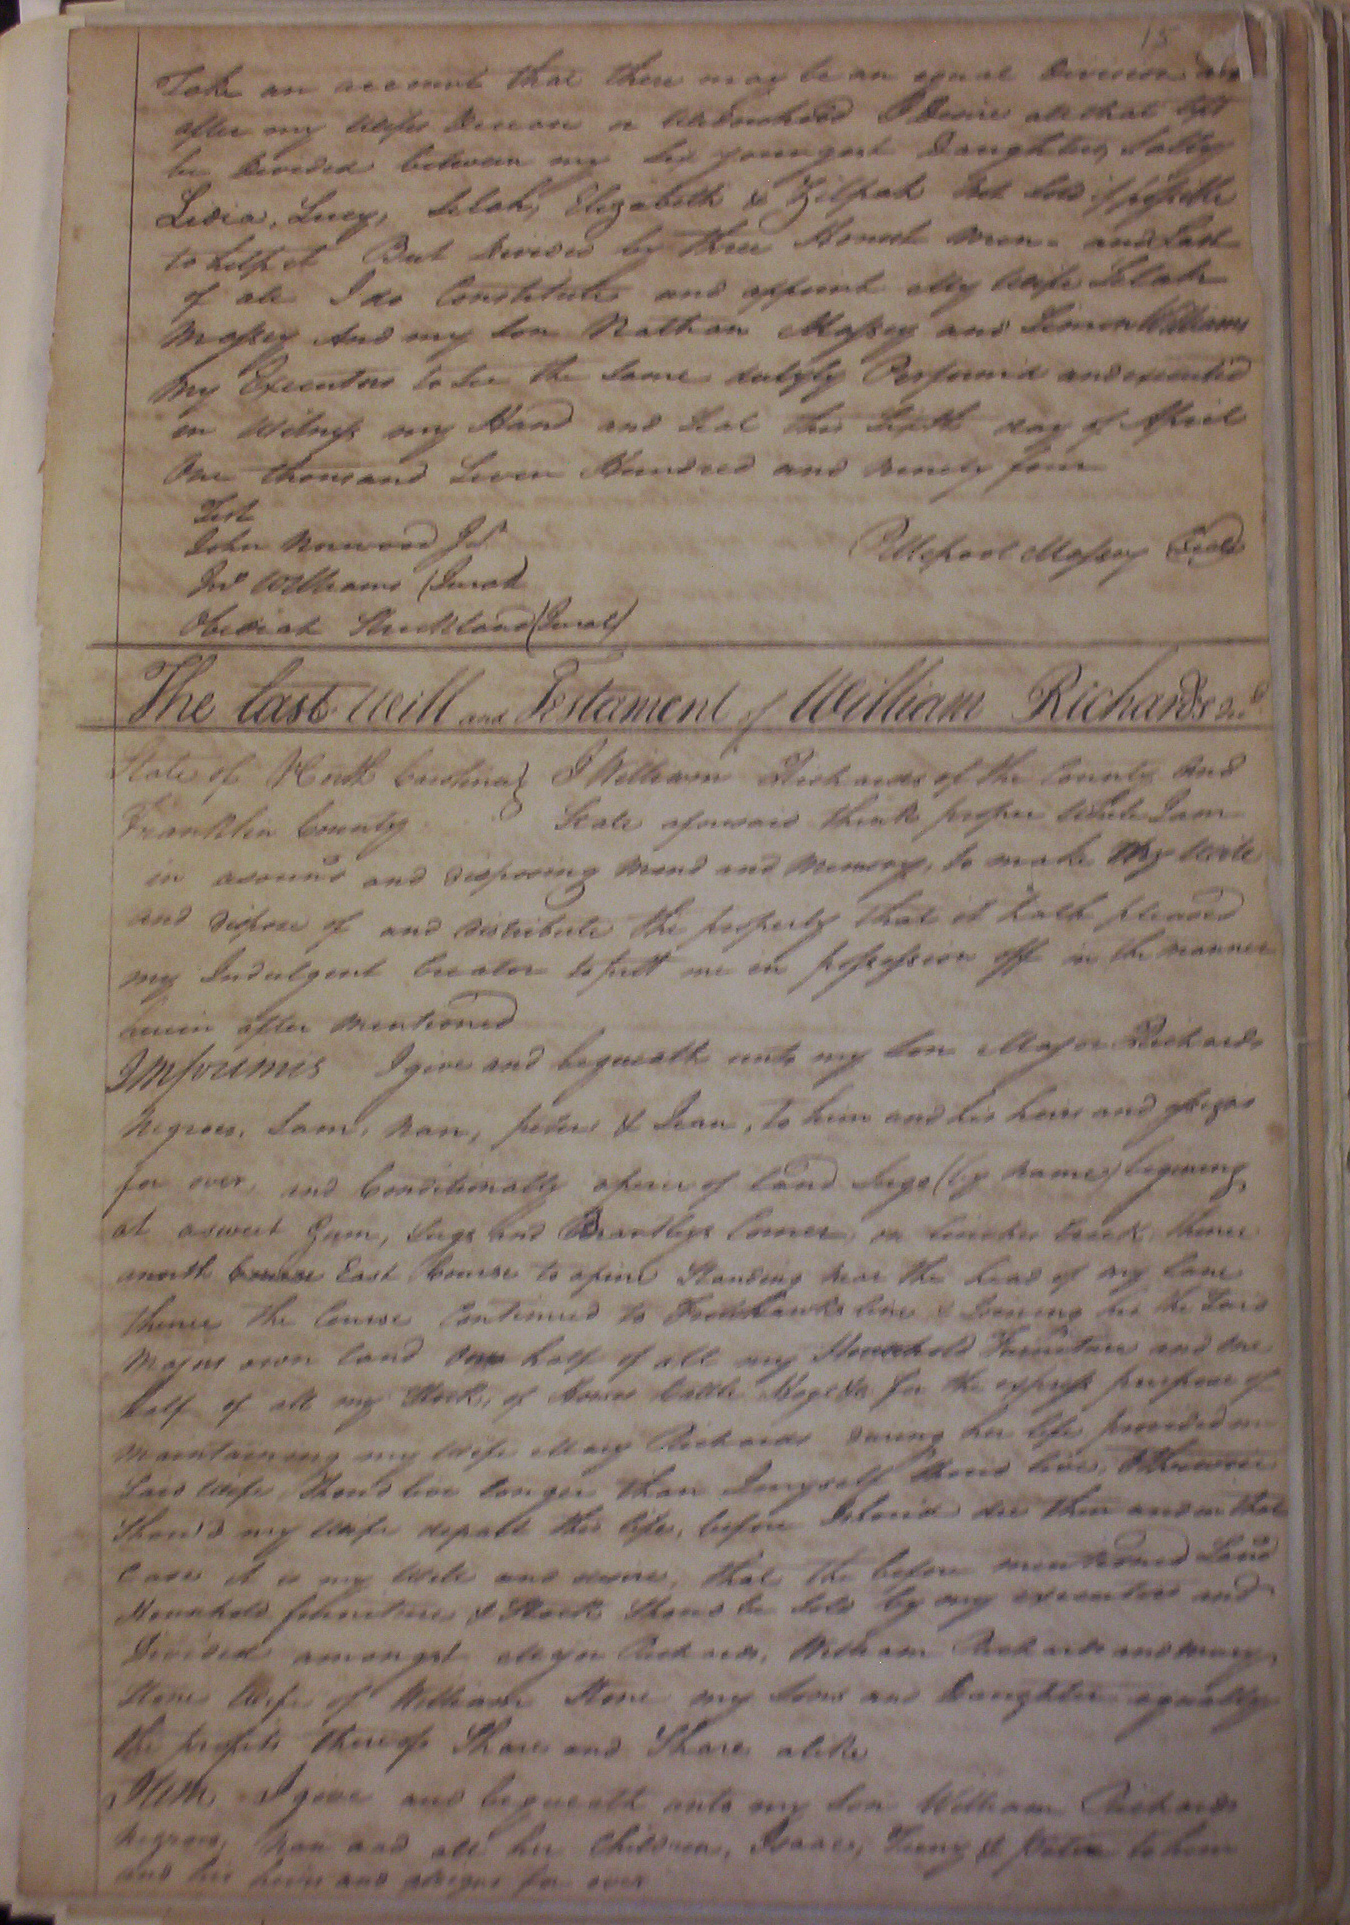 15
Take an account that there may be an equal Division and
after my wifes Decease or Widowhood I Desire all that left
be Divided between my six youngest Daughters, Salley
Lidia, Lucy, Selah, Elizabeth & Zilpah not sold if possible
to help it But Divided by three Honest men. and Last
of all I do Constitute and appoint My Wife Selah
Massey And my Son Nathan Massey and Simon Williams
my Executors to see the same Perform'd and executed
in Witness my Hand and Seal this Sixth day of April
One thousand Seven Hundred and ninety four
Test
John Norwood Jr
Jno Williams (Jurat
Obediah Strickland (Jurat)
Pettepool Massey Seal
The last Will and Testament of William Richards Decd
State of North Carolina } I William Richards of the County and
Franklin County } State aforesaid think proper while I am
in a sound and disposing mind and memory, to make my Will
and dispose of and distribute the property that it hath pleased
my Indulgent Creator to putt me in possession off in the manner
herein after mentioned
Imprimis I give and bequeath unto my Son Major Richards
Negroes, Sam, Nan, peter & Jean, to him and his heirs and assigns
for ever, and Conditionally a piece of land (by name) begining
at a sweet Gum, and Brantleys Corner, on Creek, thence
a north Course East Course to a pine Standing near the head of my lane
thence the Course Continued to line & Joining the Said
Majors own land One half of all my Household Furniture and one
half of all my Stock, of Horses Cattle Hogs &c for the express purpose of
maintaining my wife Mary Richards during her life provided my
Said Wife Should live longer than I myself Should live, Otherwise
Should my Wife depart this life, before I should die then and in that
Case it is my Will and desire, that the before mentioned Land
Household furniture & Stock Should be Sold by my executors and
Divided amongst Major Richards, William Richards and Mary
Stone Wife of William Stone my Sons and Daughter equally
the profits thereof Share and Share alike
Item I give and bequeath unto my Son William Richards
Negroes, Nan and all her Children, Isaac, & peter to him
and his heirs and assigns for ever